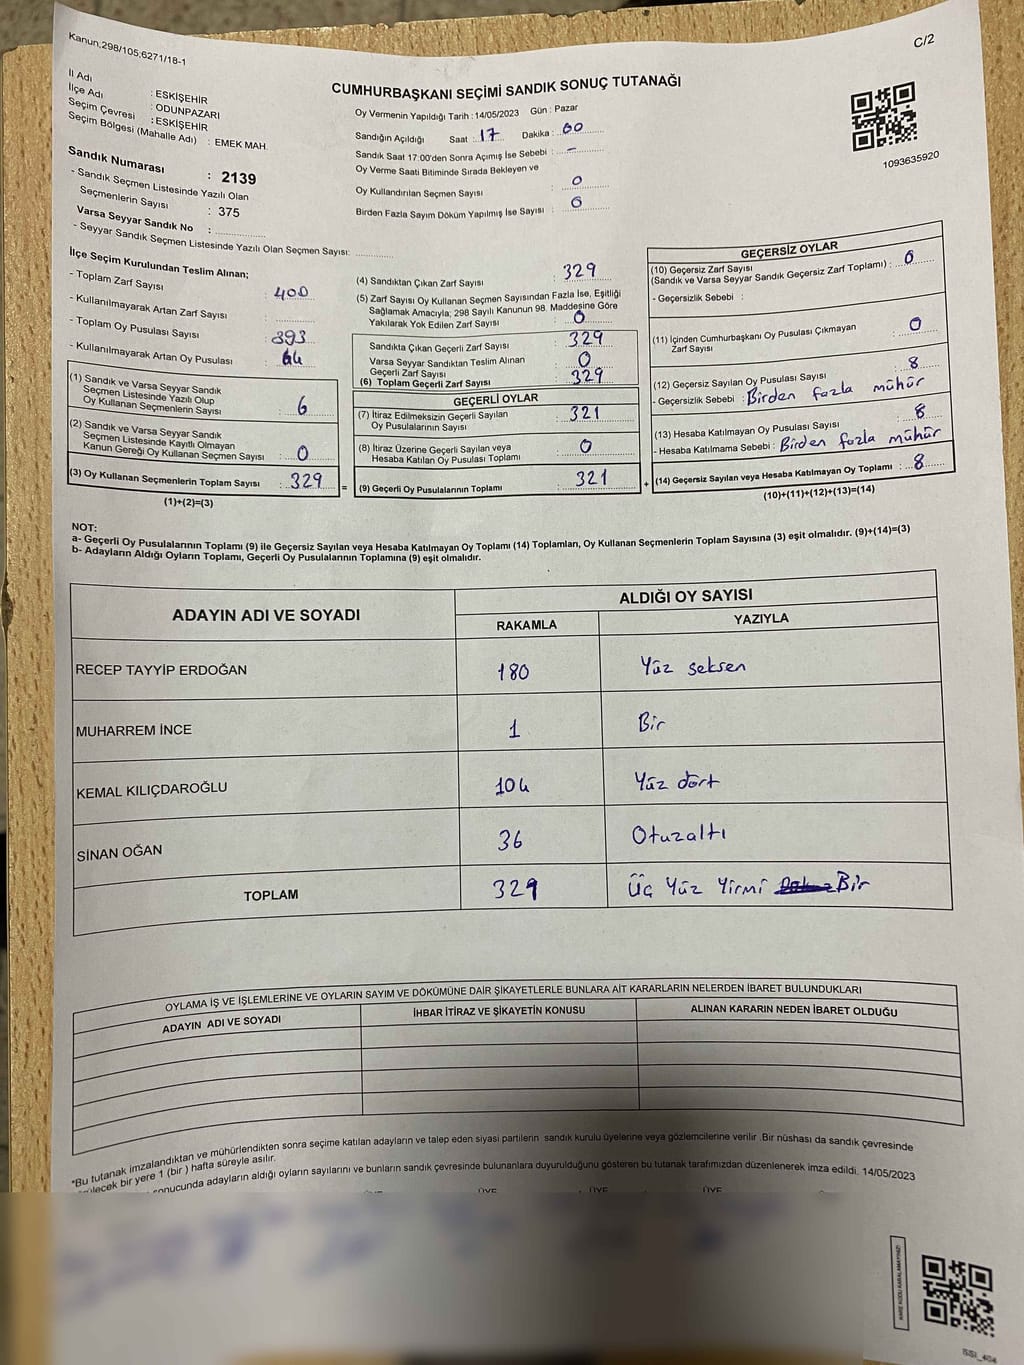 Kanun;298/105;6271/18-1
C/2
İl Adı : ESKİŞEHİR
İlçe Adı : ODUNPAZARI
Seçim Çevresi : ESKİŞEHİR
Seçim Bölgesi (Mahalle Adı) : EMEK MAH.
Sandık Numarası : 2139
- Sandık Seçmen Listesinde Yazılı Olan
Seçmenlerin Sayısı : 375
Varsa Seyyar Sandık No :
- Seyyar Sandık Seçmen Listesinde Yazılı Olan Seçmen Sayısı:
CUMHURBAŞKANI SEÇİMİ SANDIK SONUÇ TUTANAĞI
Oy Vermenin Yapıldığı Tarih : 14/05/2023 Gün : Pazar
Sandığın Açıldığı Saat : 17 Dakika : 00
Sandık Saat 17:00'den Sonra Açımış İse Sebebi : -
Oy Verme Saati Bitiminde Sırada Bekleyen ve
Oy Kullandırılan Seçmen Sayısı : 0
Birden Fazla Sayım Döküm Yapılmış İse Sayısı : 0
1093635920
İlçe Seçim Kurulundan Teslim Alınan;
- Toplam Zarf Sayısı : 400
- Kullanılmayarak Artan Zarf Sayısı :
- Toplam Oy Pusulası Sayısı : 393
- Kullanılmayarak Artan Oy Pusulası : 64
(1) Sandık ve Varsa Seyyar Sandık
Seçmen Listesinde Yazılı Olup
Oy Kullanan Seçmenlerin Sayısı : 6
(2) Sandık ve Varsa Seyyar Sandık
Seçmen Listesinde Kayıtlı Olmayan
Kanun Gereği Oy Kullanan Seçmen Sayısı : 0
(3) Oy Kullanan Seçmenlerin Toplam Sayısı : 329
(1)+(2)=(3)
=
(4) Sandıktan Çıkan Zarf Sayısı : 329
(5) Zarf Sayısı Oy Kullanan Seçmen Sayısından Fazla İse, Eşitliği
Sağlamak Amacıyla; 298 Sayılı Kanunun 98. Maddesine Göre
Yakılarak Yok Edilen Zarf Sayısı : 0
Sandıkta Çıkan Geçerli Zarf Sayısı : 329
Varsa Seyyar Sandıktan Teslim Alınan
Geçerli Zarf Sayısı : 0
(6) Toplam Geçerli Zarf Sayısı : 329
GEÇERLİ OYLAR
(7) İtiraz Edilmeksizin Geçerli Sayılan
Oy Pusulalarının Sayısı : 321
(8) İtiraz Üzerine Geçerli Sayılan veya
Hesaba Katılan Oy Pusulası Toplamı : 0
(9) Geçerli Oy Pusulalarının Toplamı : 321
+
GEÇERSİZ OYLAR
(10) Geçersiz Zarf Sayısı
(Sandık ve Varsa Seyyar Sandık Geçersiz Zarf Toplamı) : 0
- Geçersizlik Sebebi :
(11) İçinden Cumhurbaşkanı Oy Pusulası Çıkmayan
Zarf Sayısı : 0
(12) Geçersiz Sayılan Oy Pusulası Sayısı : 8
- Geçersizlik Sebebi : Birden fazla mühür
(13) Hesaba Katılmayan Oy Pusulası Sayısı : 8
- Hesaba Katılmama Sebebi : Birden fazla mühür
(14) Geçersiz Sayılan veya Hesaba Katılmayan Oy Toplamı : 8
(10)+(11)+(12)+(13)=(14)
NOT:
a- Geçerli Oy Pusulalarının Toplamı (9) ile Geçersiz Sayılan veya Hesaba Katılmayan Oy Toplamı (14) Toplamları, Oy Kullanan Seçmenlerin Toplam Sayısına (3) eşit olmalıdır. (9)+(14)=(3)
b- Adayların Aldığı Oyların Toplamı, Geçerli Oy Pusulalarının Toplamına (9) eşit olmalıdır.
ADAYIN ADI VE SOYADI
ALDIĞI OY SAYISI
RAKAMLA YAZIYLA
RECEP TAYYİP ERDOĞAN 180 Yüz seksen
MUHARREM İNCE 1 Bir
KEMAL KILIÇDAROĞLU 104 Yüz dört
SİNAN OĞAN 36 Otuzaltı
TOPLAM 329 Üç Yüz Yirmi Bir
OYLAMA İŞ VE İŞLEMLERİNE VE OYLARIN SAYIM VE DÖKÜMÜNE DAİR ŞİKAYETLERLE BUNLARA AİT KARARLARIN NELERDEN İBARET BULUNDUKLARI
ADAYIN ADI VE SOYADI İHBAR İTİRAZ VE ŞİKAYETİN KONUSU ALINAN KARARIN NEDEN İBARET OLDUĞU
*Bu tutanak imzalandıktan ve mühürlendikten sonra seçime katılan adayların ve talep eden siyasi partilerin sandık kurulu üyelerine veya gözlemcilerine verilir .Bir nüshası da sandık çevresinde
bir yere 1 (bir ) hafta süreyle asılır.
sonucunda adayların aldığı oyların sayılarını ve bunların sandık çevresinde bulunanlara duyurulduğunu gösteren bu tutanak tarafımızdan düzenlenerek imza edildi. 14/05/2023
ÜYE ÜYE ÜYE